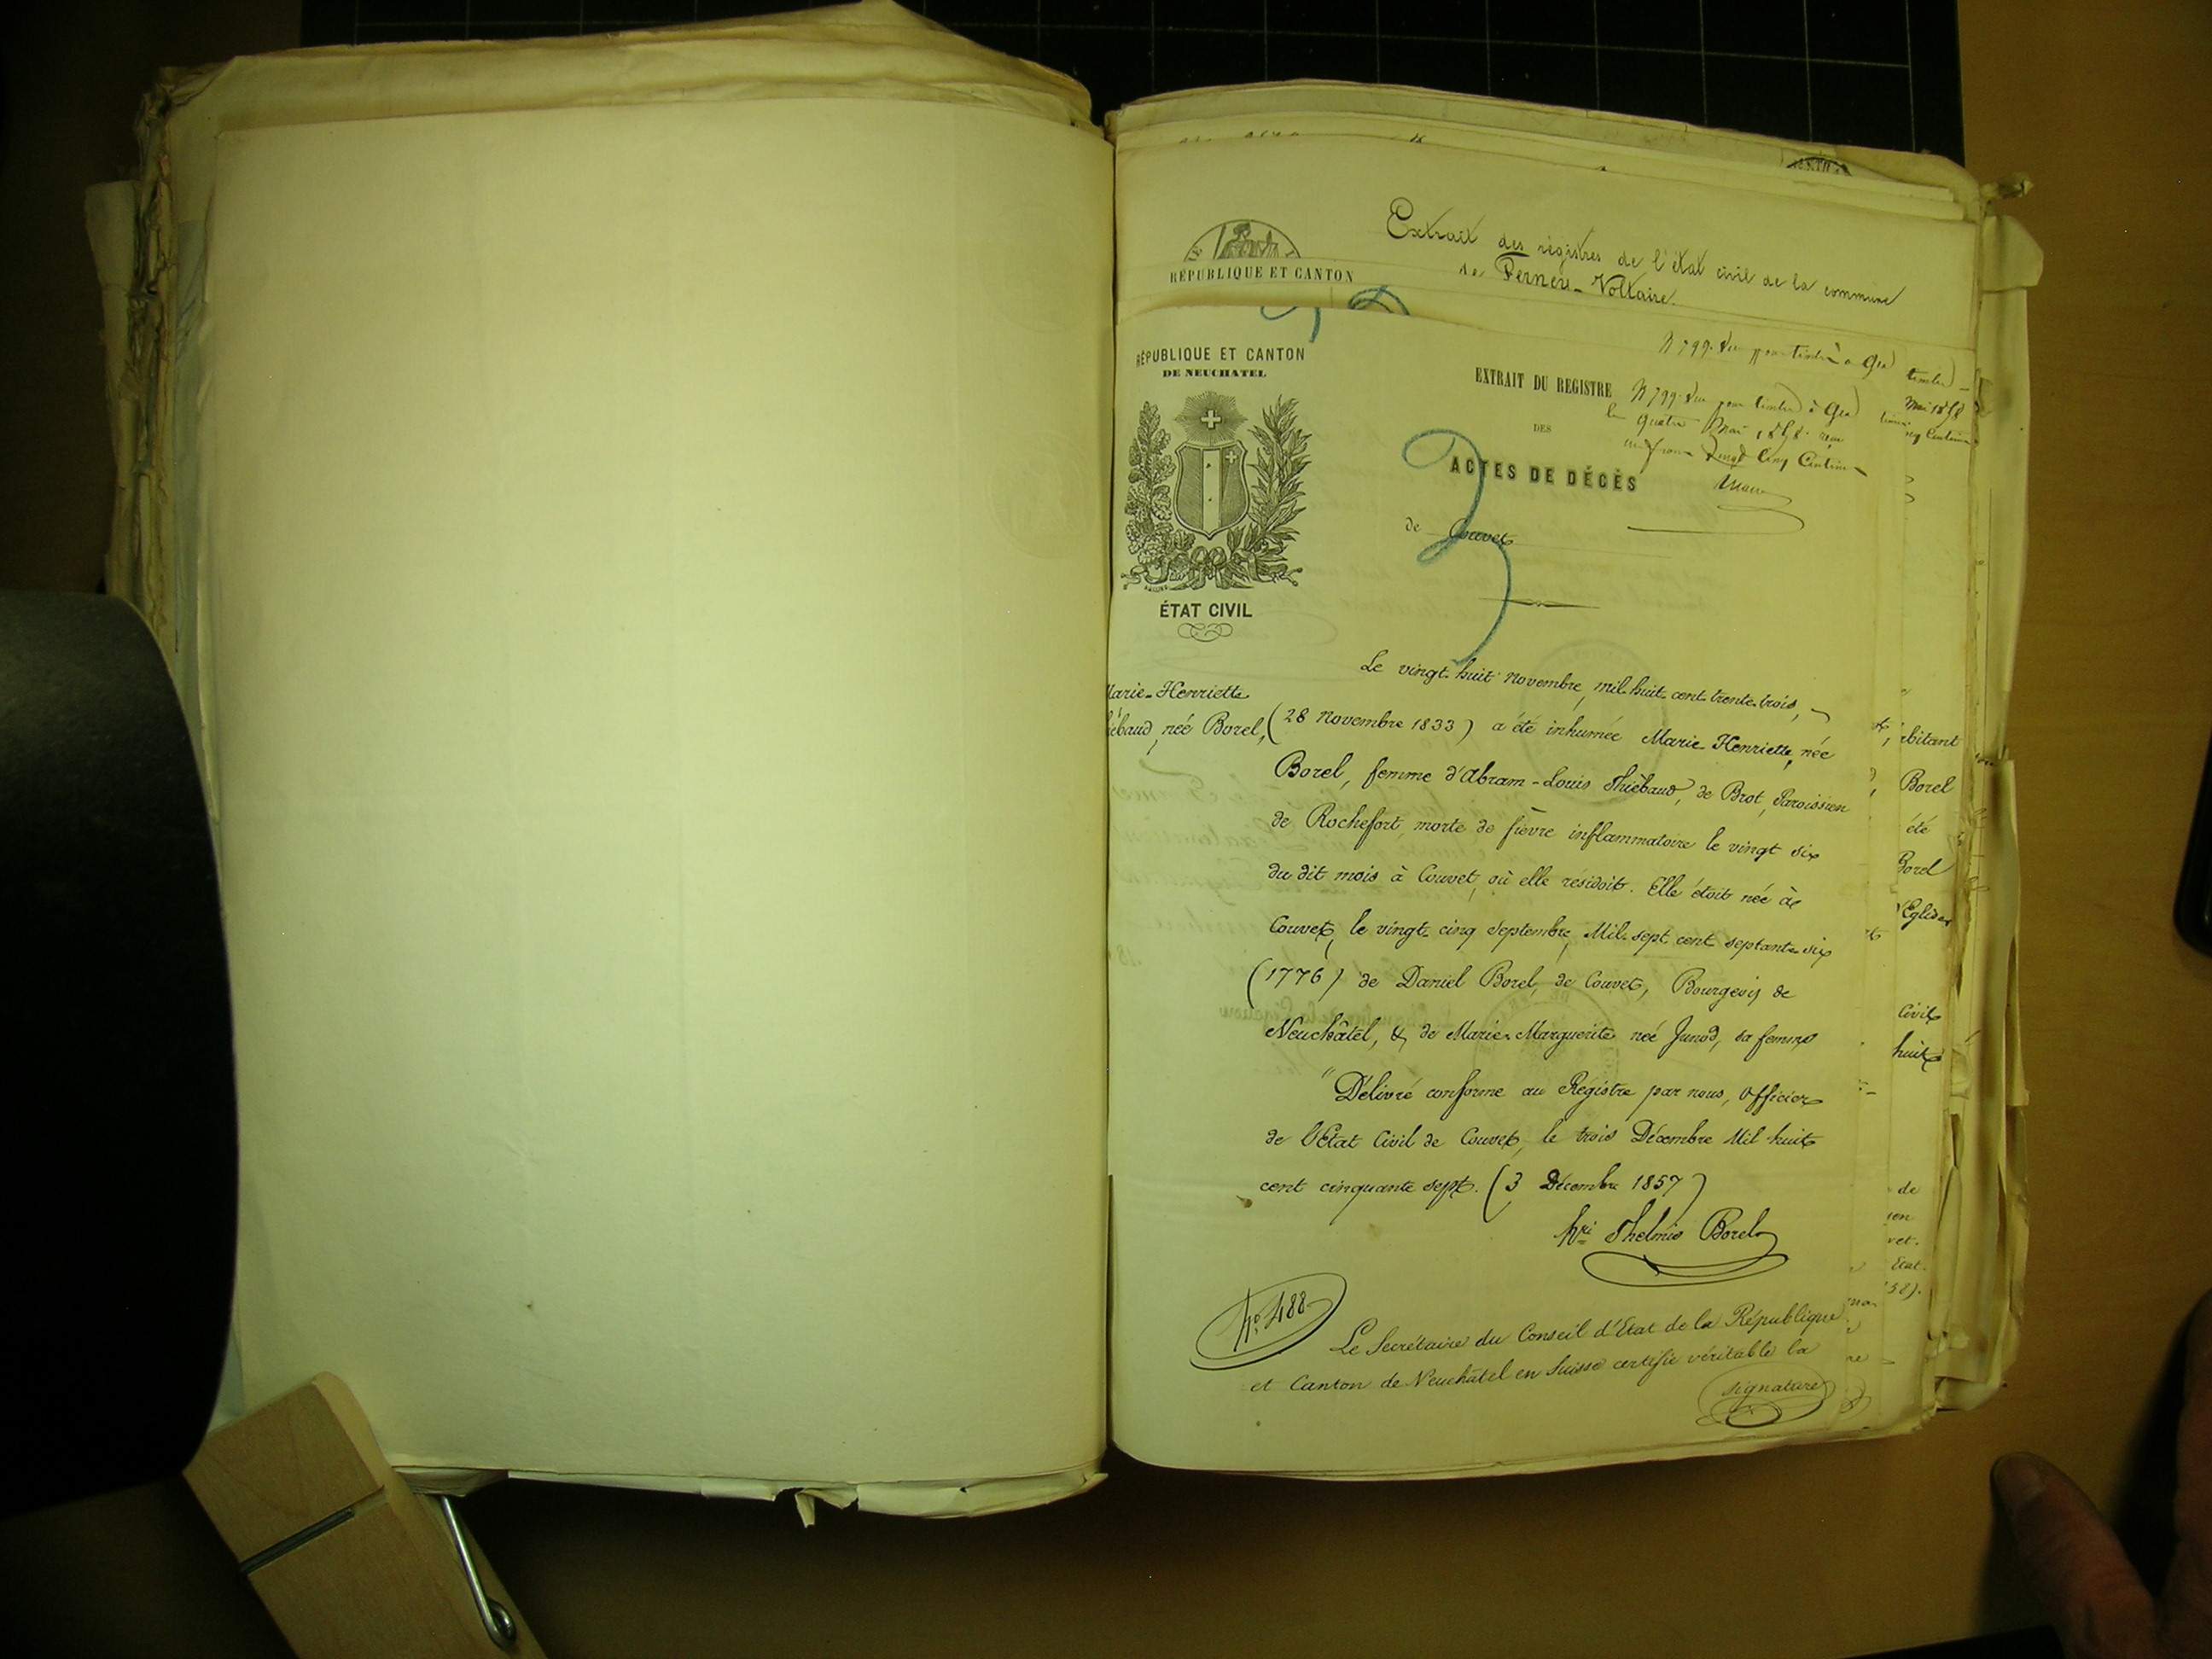 Extrait des régistres de l'état civil de la commune
de Ferney-Voltaire.
RÉPUBLIQUE ET CANTON
RÉPUBLIQUE ET CANTON
DE NEUCHATEL
ÉTAT CIVIL
N 799. Vu pour timbre a
EXTRAIT DU REGISTRE
DES
ACTES DE DÉCÈS
de Couvet
N 799. Vu pour timbre à
le quatre Mai 1858. reçu
un franc vingt cinq Centimes
timbre
Mai 1858
Marie-Henriette
née Borel,
Le vingt-huit Novembre, mil-huit-cent-trente-trois,
(28 Novembre 1833) a été inhumée Marie-Henriette, née
Borel, femme d'Abram-Louis Thiébaud, de Brot, Paroissien
de Rochefort, morte de fièvre inflammatoire le vingt six
du dit mois à Couvet, où elle résidoit. Elle étoit née à
Couvet, le vingt-cinq Septembre, Mil-sept-cent-septante-six
(1776) de Daniel Borel, de Couvet, Bourgeois de
Neuchâtel, & de Marie-Marguerite neé Junod, sa femme
" Délivré conforme au Régistre par nous, Officier
de l'Etat Civil de Couvet, le trois Décembre Mil-huit
cent cinquante sept. (3 Décembre 1857)
hri Thelmis Borel
No. 488
Le Secrétaire du Conseil d'Etat de la République
et Canton de Neuchâtel en Suisse certifie véritable la
signature
Borel
été
Borel
Eglise
Civil
huit
de
Etat.
58).